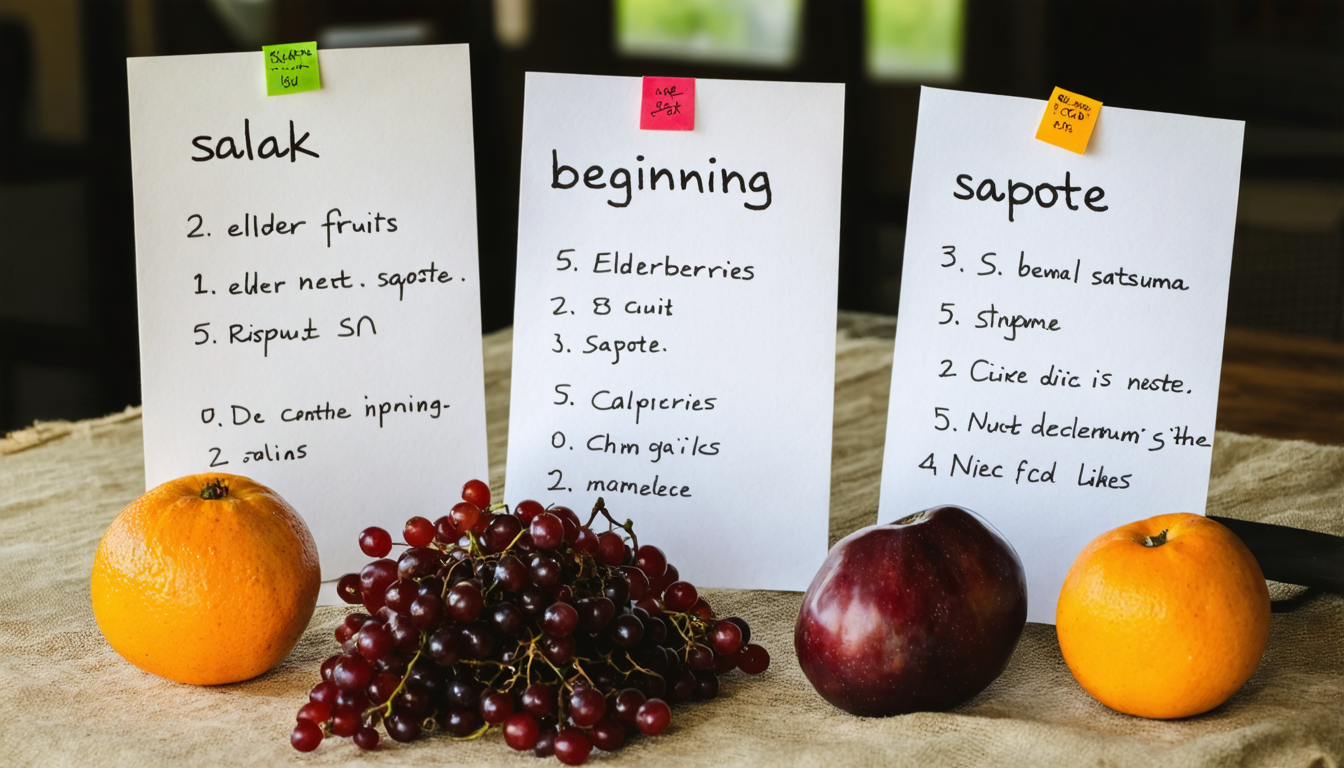 salak
2. ellder fruits
1. eller nert. sqoste.
5. Rispust SN
0. De centhe ipning-
2 salins
beginning
5. Elderberries
2. 8 cuit
3. Sapote.
5. Calpicries
0. Chm gaïlks
2. mamelece
sapote
3. S. bemal satsuma
5. Stnpme
2 Cuke diic is neste.
5. Nuct declemum's the
4 Niec fcd Likes